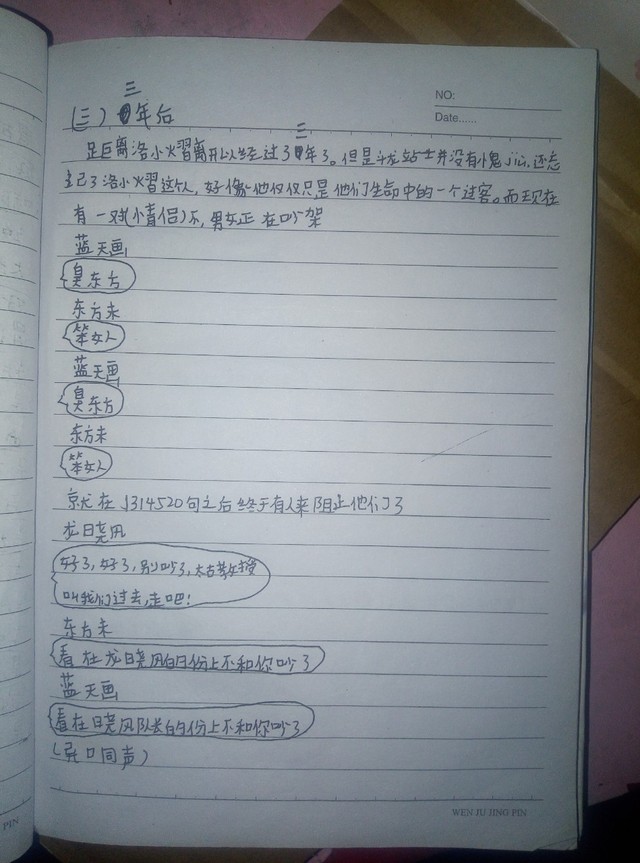 NO:
Date......
三
(三)年后
三
是距离洛小熠离开以经过了年了。但是斗龙战士并没有愧jiu,还忘
记了洛小熠这个人,好像他仅仅只是他们生命中的一个过客。而现在
有一对(情侣)不,男女正在吵架
蓝天画
臭东方
东方末
笨女人
蓝天画
臭东方
东方末
笨女人
就在1314520句之后终于有人来阻止他们了
龙晓风
好了,好了,别吵了,太古教授
叫我们过去,走吧!
东方末
看在龙晓风的份上不和你吵了
蓝天画
看在晓风队长的份上不和你吵了
(异口同声)
WEN JU JING PIN
PIN